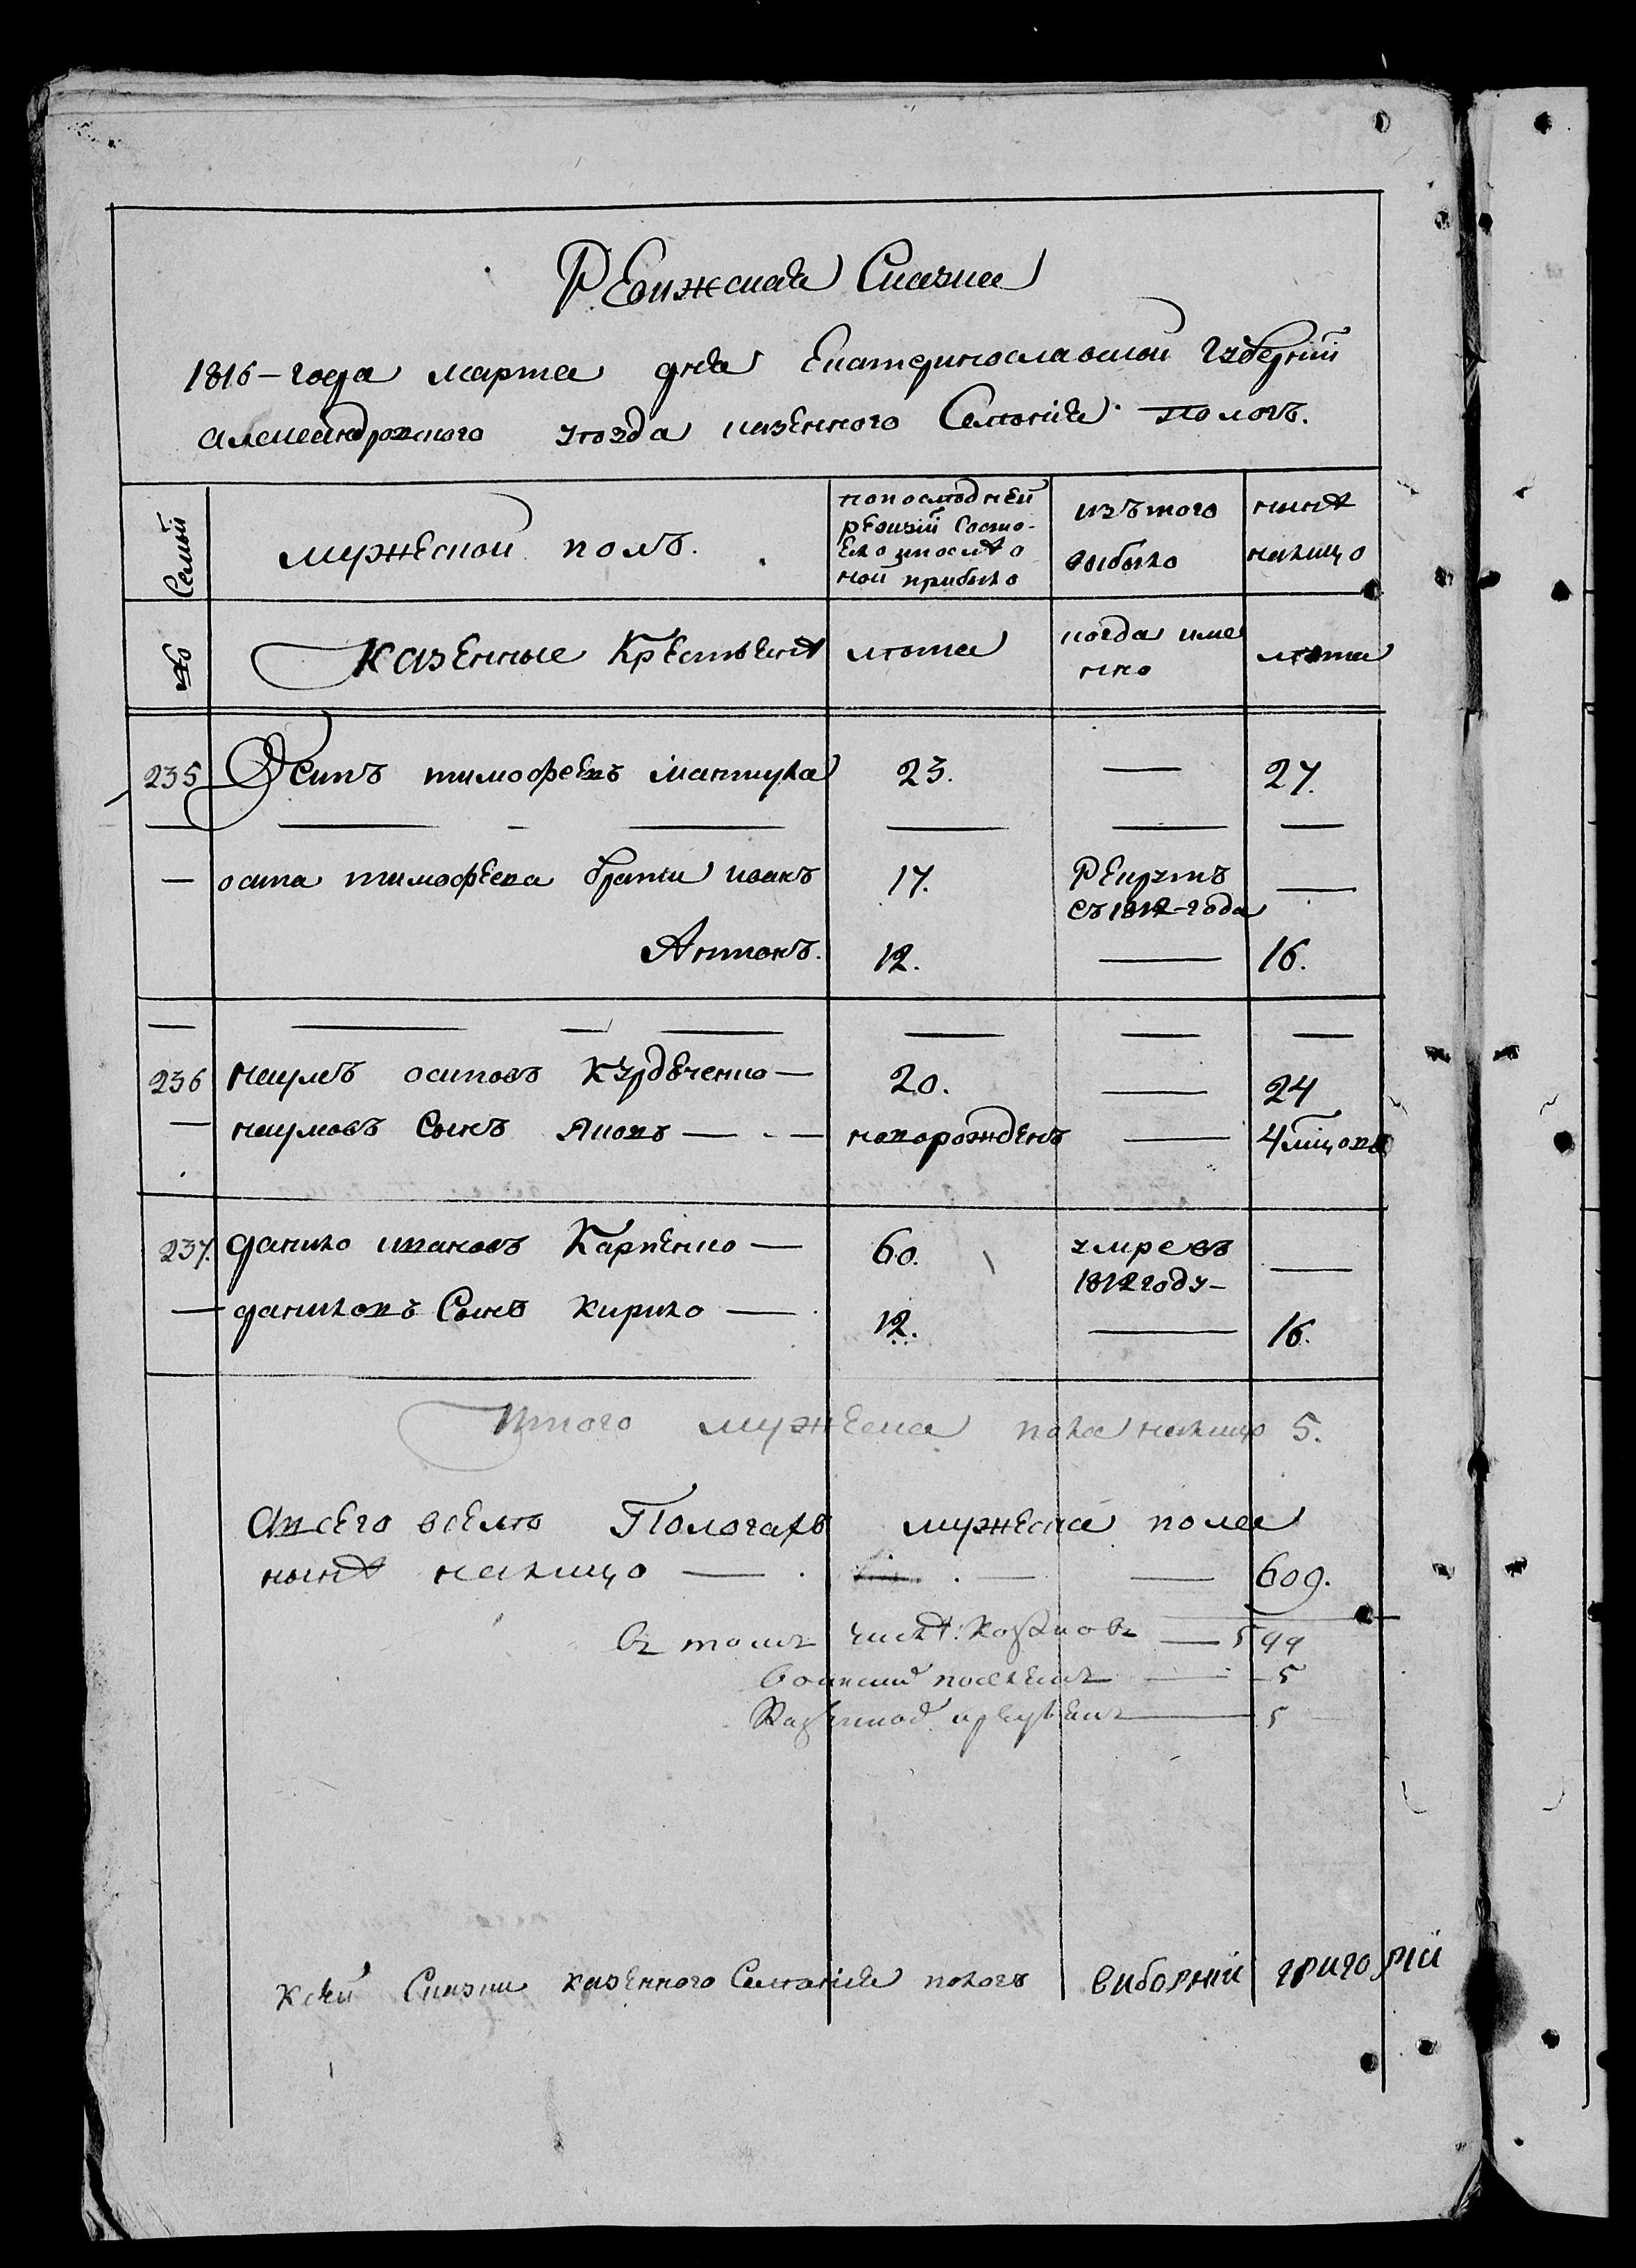 Ревижская Сказка
1816-года марта дня Екатеринославской губернии
Александровского уѣзда казенного Селенія Пологъ.
Семьи
мужеской полъ.
по последней ревизій состояло и после оной прибыло
изъ того выбыло
нынѣ налицо
№
Казенные Крестьянѣ
лѣта
когда именно
лѣта
235 Осипъ тимофеевъ Мантула 23. — 27.
— осипа тимофеева братья иванъ 17. Рекрутъ съ 1812-года —
Антонъ. 12. — 16.
236 наумъ осиповъ Курдѣченко — 20. — 24
— наумовъ Сынъ Яковъ — новорожденъ — 4 мѣцовъ
237. данило ивановъ Карпенко — 60. умре въ 1812 году —
— даниловъ Сынъ кирило — 12. — 16.
Итого мужеска пола налицо 5.
А всего в селѣ Пологахъ мужеска пола
нынѣ налицо — 609.
въ томъ числѣ: Козаковъ — 599
воински поселенъ — 5
Казенной — 5
К сей Сказки казенного Селенія пологъ виборний григорій